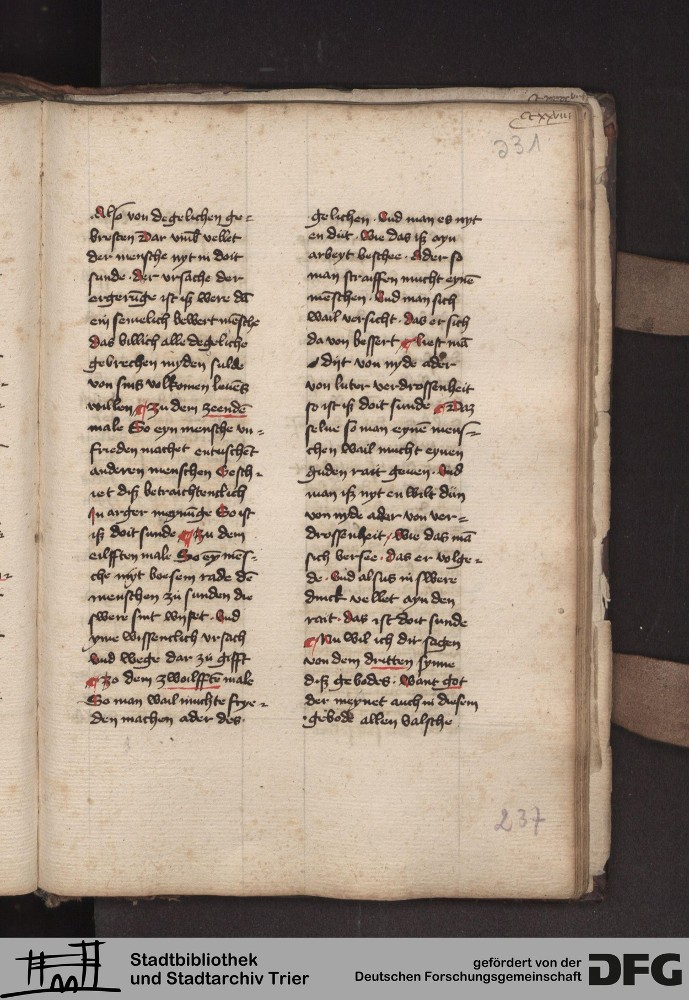 ccxxviii
231
Also von degelichen ge-
bresten Dar vmb vellet
der mensche nyt in doit
sunde. der vrsache der
ergerūge ist iß were dā
ein semelich bewert mēsche
das billich alle degeliche
gebrechen myden sulde
von sins volkomen louēs
willen Zu dem zeendē
male So eyn mensche vn-
frieden machet entuschēt
anderen menschen Gesch-
iet diß betraichtentlich
In arger meynūge So ist
iß doit sunde Zu dem
eilfften male So ey mēs-
che myt boesem rade dē
menschen zü sunden die
swere sint wiset. Vnd
yme wissentlich vrsach
vnd wege dar zü gifft
Zo dem zwoilfftē male
So man wail muchte frye-
den machen ader des
gelichen. Vnd man es nyt
en düt. Wie das iß ayn
arbeyt beschee. Ader so
man straiffen mucht eynē
mēschen. Vnd man sich
wail versicht. das er sich
da von bessert liest mā
düt von nyde ader
von luter verdrossenheit
so ist iß doit sunde Daz
selue so man eynē mens-
chen wail mucht eynen
guden rait geuen. Vnd
man iß nyt en wilt dün
von nyde ader von ver-
drossenheit. Wie das mā
sich versee. das er volge-
de. Vnd alsus in swere
druck vellet ayn den
rait. das ist doit sunde
Nu wil ich dir sagen
von dem dritten synne
diß gebodes. Want got
der meynet auch in diesem
gebode allen valsche
237
Stadtbibliothek
und Stadtarchiv Trier
gefördert von der
Deutschen Forschungsgemeinschaft
DFG